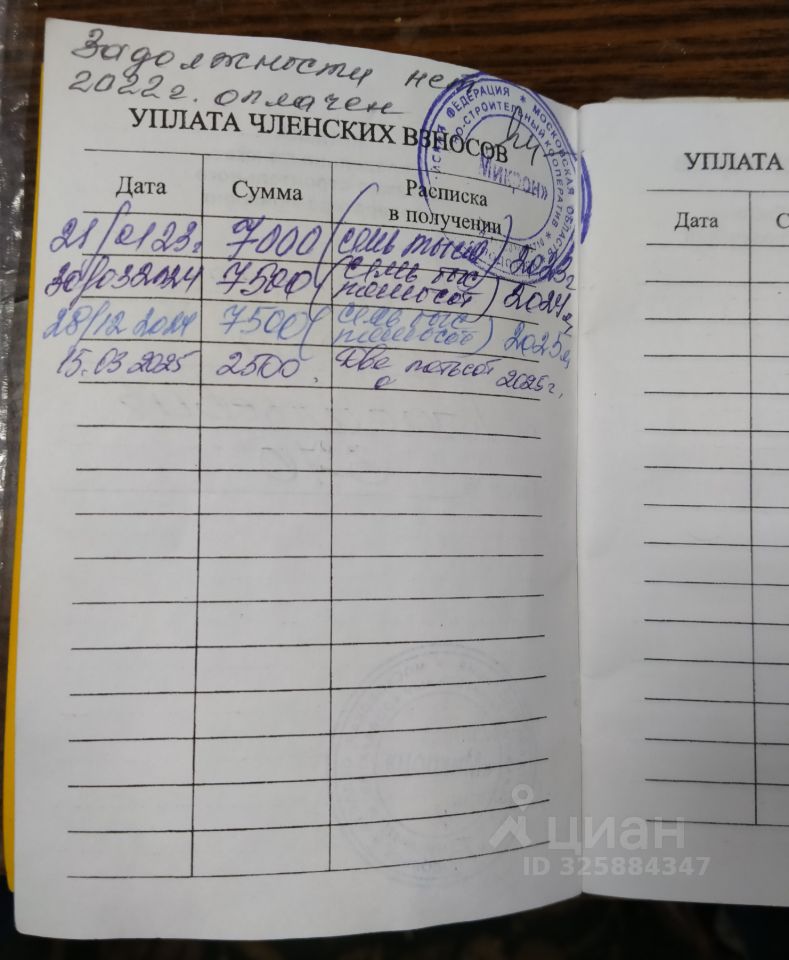 Задолжности нет
2022г. оплачен
УПЛАТА ЧЛЕНСКИХ ВЗНОСОВ
ФЕДЕРАЦИЯ * МОСКОВСКАЯ ОБЛАСТЬ
О-СТРОИТЕЛЬНЫЙ КООПЕРАТИВ *
МИКРОН»
Дата Сумма Расписка
в получении
21/0123г 7000 (семь тысяч) 2023г
30/032024 7500 (семь тыс
пятьсот) 2024г,
28/12 2024 7500 (семь тыс
пятьсот) 2025г,
15.03 2025 2500. Две пятьсот 2025г,
УПЛАТА
Дата С
циан
ID 325884347